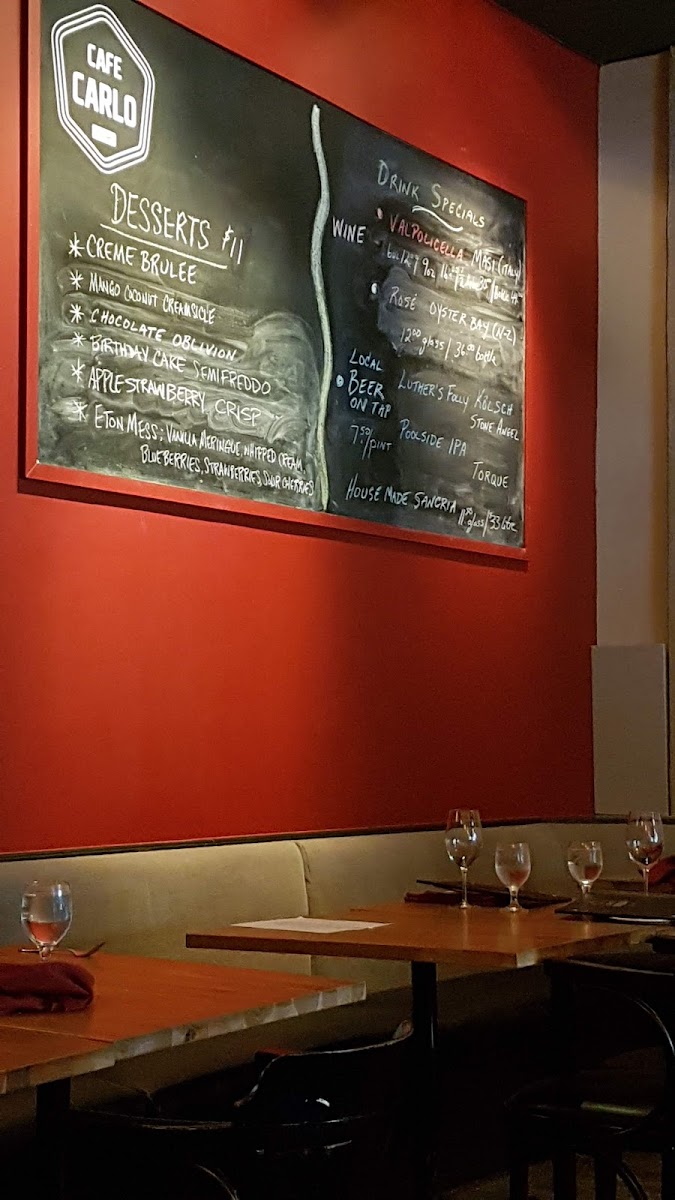 CAFE
CARLO
DESSERTS $11
* CREME BRULEE
* MANGO COCONUT CREAMSICLE
* CHOCOLATE OBLIVION
* BIRTHDAY CAKE SEMIFREDDO
* APPLE STRAWBERRY CRISP
* ETON MESS: VANILLA MERINGUE, WHIPPED CREAM,
BLUEBERRIES, STRAWBERRIES, SOUR CHERRIES
DRINK SPECIALS
WINE
• VALPOLICELLA MASI (ITALY)
6oz 12 / 9oz
• ROSÉ OYSTER BAY (N-Z)
12.00 glass / 36.00 bottle
LOCAL
• BEER
ON TAP
7.50/PINT
LUTHER'S FOLLY KÖLSCH
STONE ANGEL
POOLSIDE IPA
TORQUE
HOUSE MADE SANGRIA 11.50 glass / 33 litre